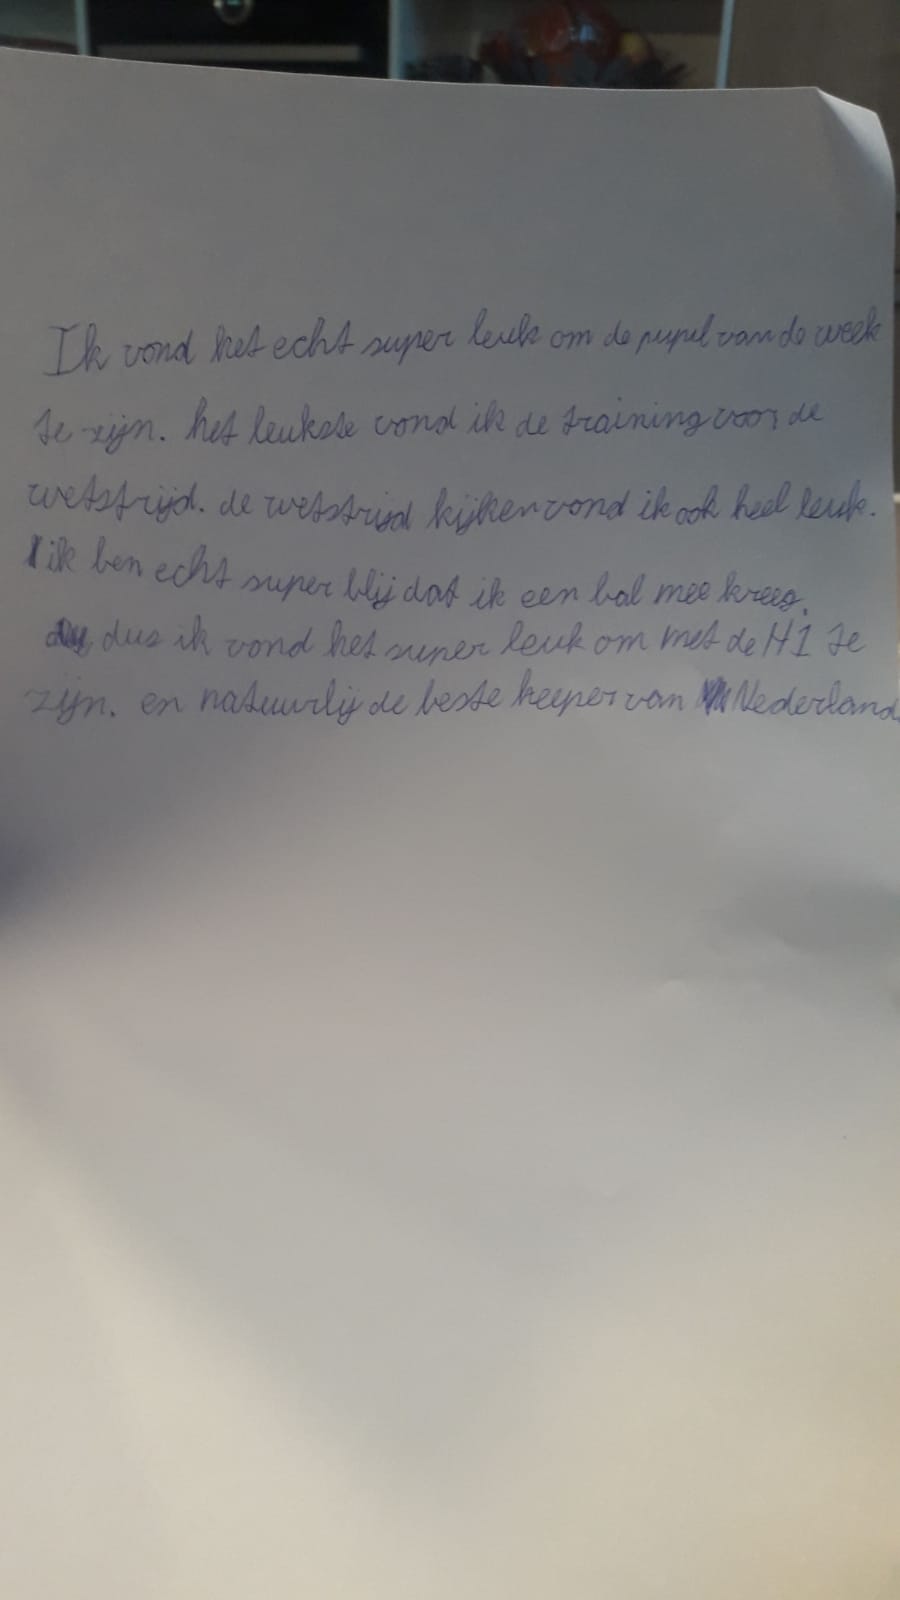 Ik vond het echt super leuk om de pupil van de week
te zijn. het leukste vond ik de training voor de
wetstrijd. de wetstrijd kijken vond ik ook heel leuk.
ik ben echt super blij dat ik een bal mee kreeg.
dus ik vond het super leuk om met de H1 te
zijn. en natuurlij de beste keeper van Nederland.